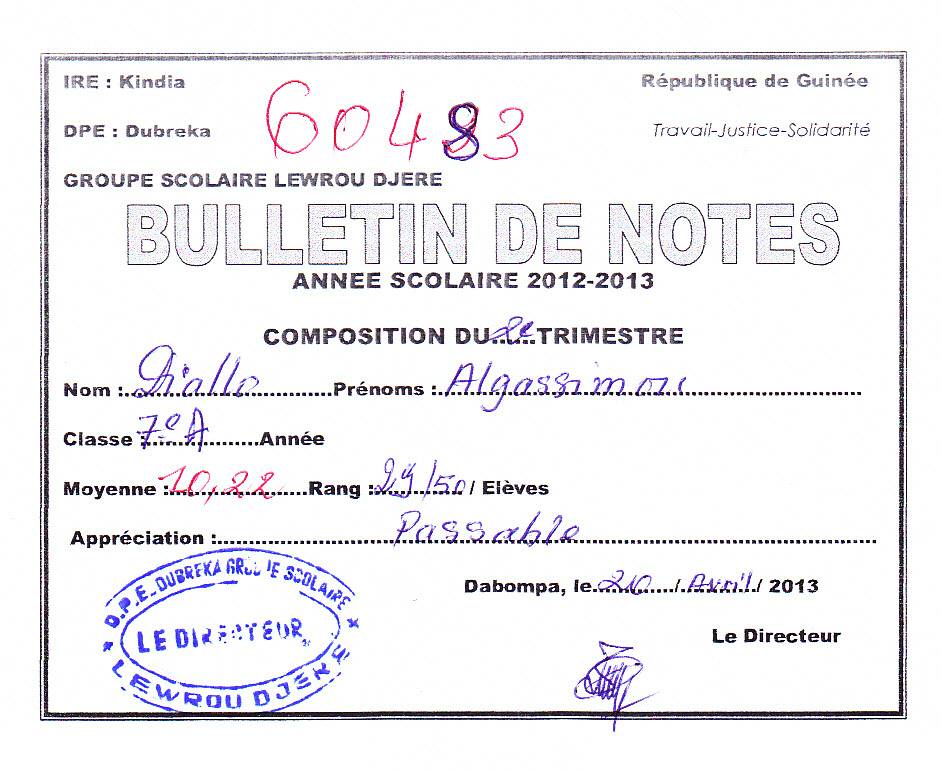 IRE : Kindia République de Guinée
60483
DPE : Dubreka Travail-Justice-Solidarité
GROUPE SCOLAIRE LEWROU DJERE
BULLETIN DE NOTES
ANNEE SCOLAIRE 2012-2013
COMPOSITION DU 2e TRIMESTRE
Nom : Diallo Prénoms : Algassimou
Classe : 7e A Année
Moyenne : 10,22 Rang : 29/50 / Elèves
Appréciation : Passable
Dabompa, le 20 / Avril / 2013
Le Directeur
D.P.E. DUBREKA GROUPE SCOLAIRE
LE DIRECTEUR
LEWROU DJERE